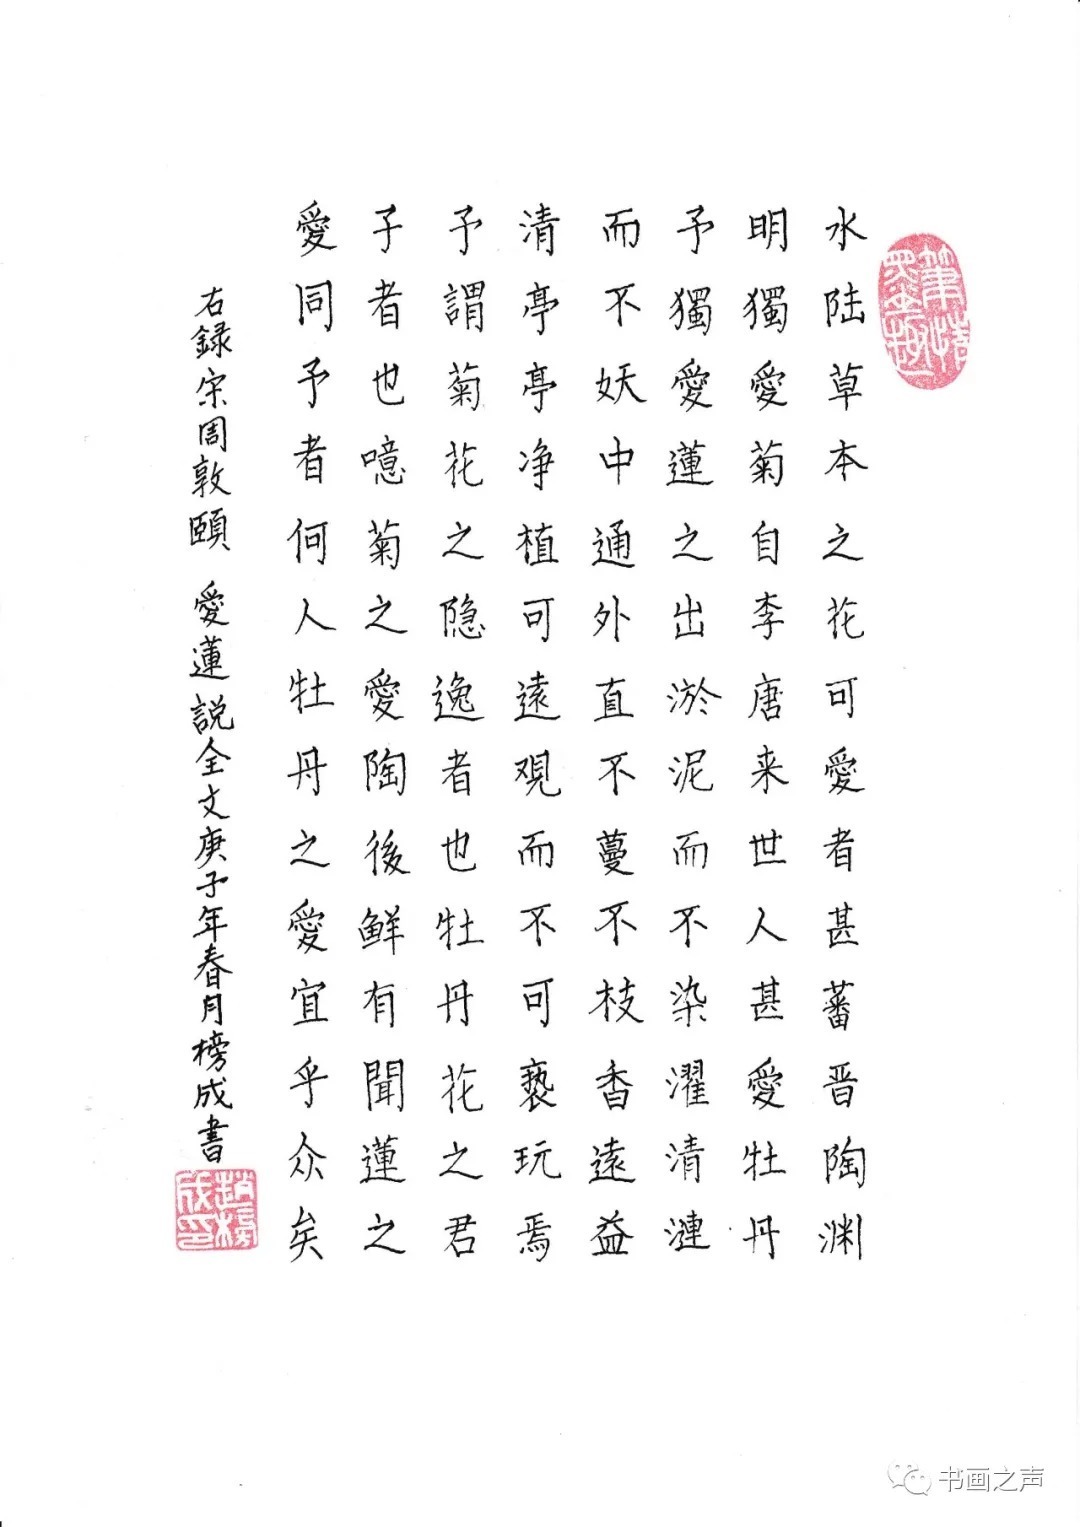 水陆草本之花可愛者甚蕃晋陶渊
明獨愛菊自李唐来世人甚愛牡丹
予獨愛蓮之出淤泥而不染濯清漣
而不妖中通外直不蔓不枝香遠益
清亭亭净植可遠观而不可亵玩焉
予謂菊花之隐逸者也牡丹花之君
子者也噫菊之愛陶後鲜有聞蓮之
愛同予者何人牡丹之愛宜乎众矣
右録宋周敦頤 愛蓮説全文庚子年春月榜成書
趙榜成印
书画之声